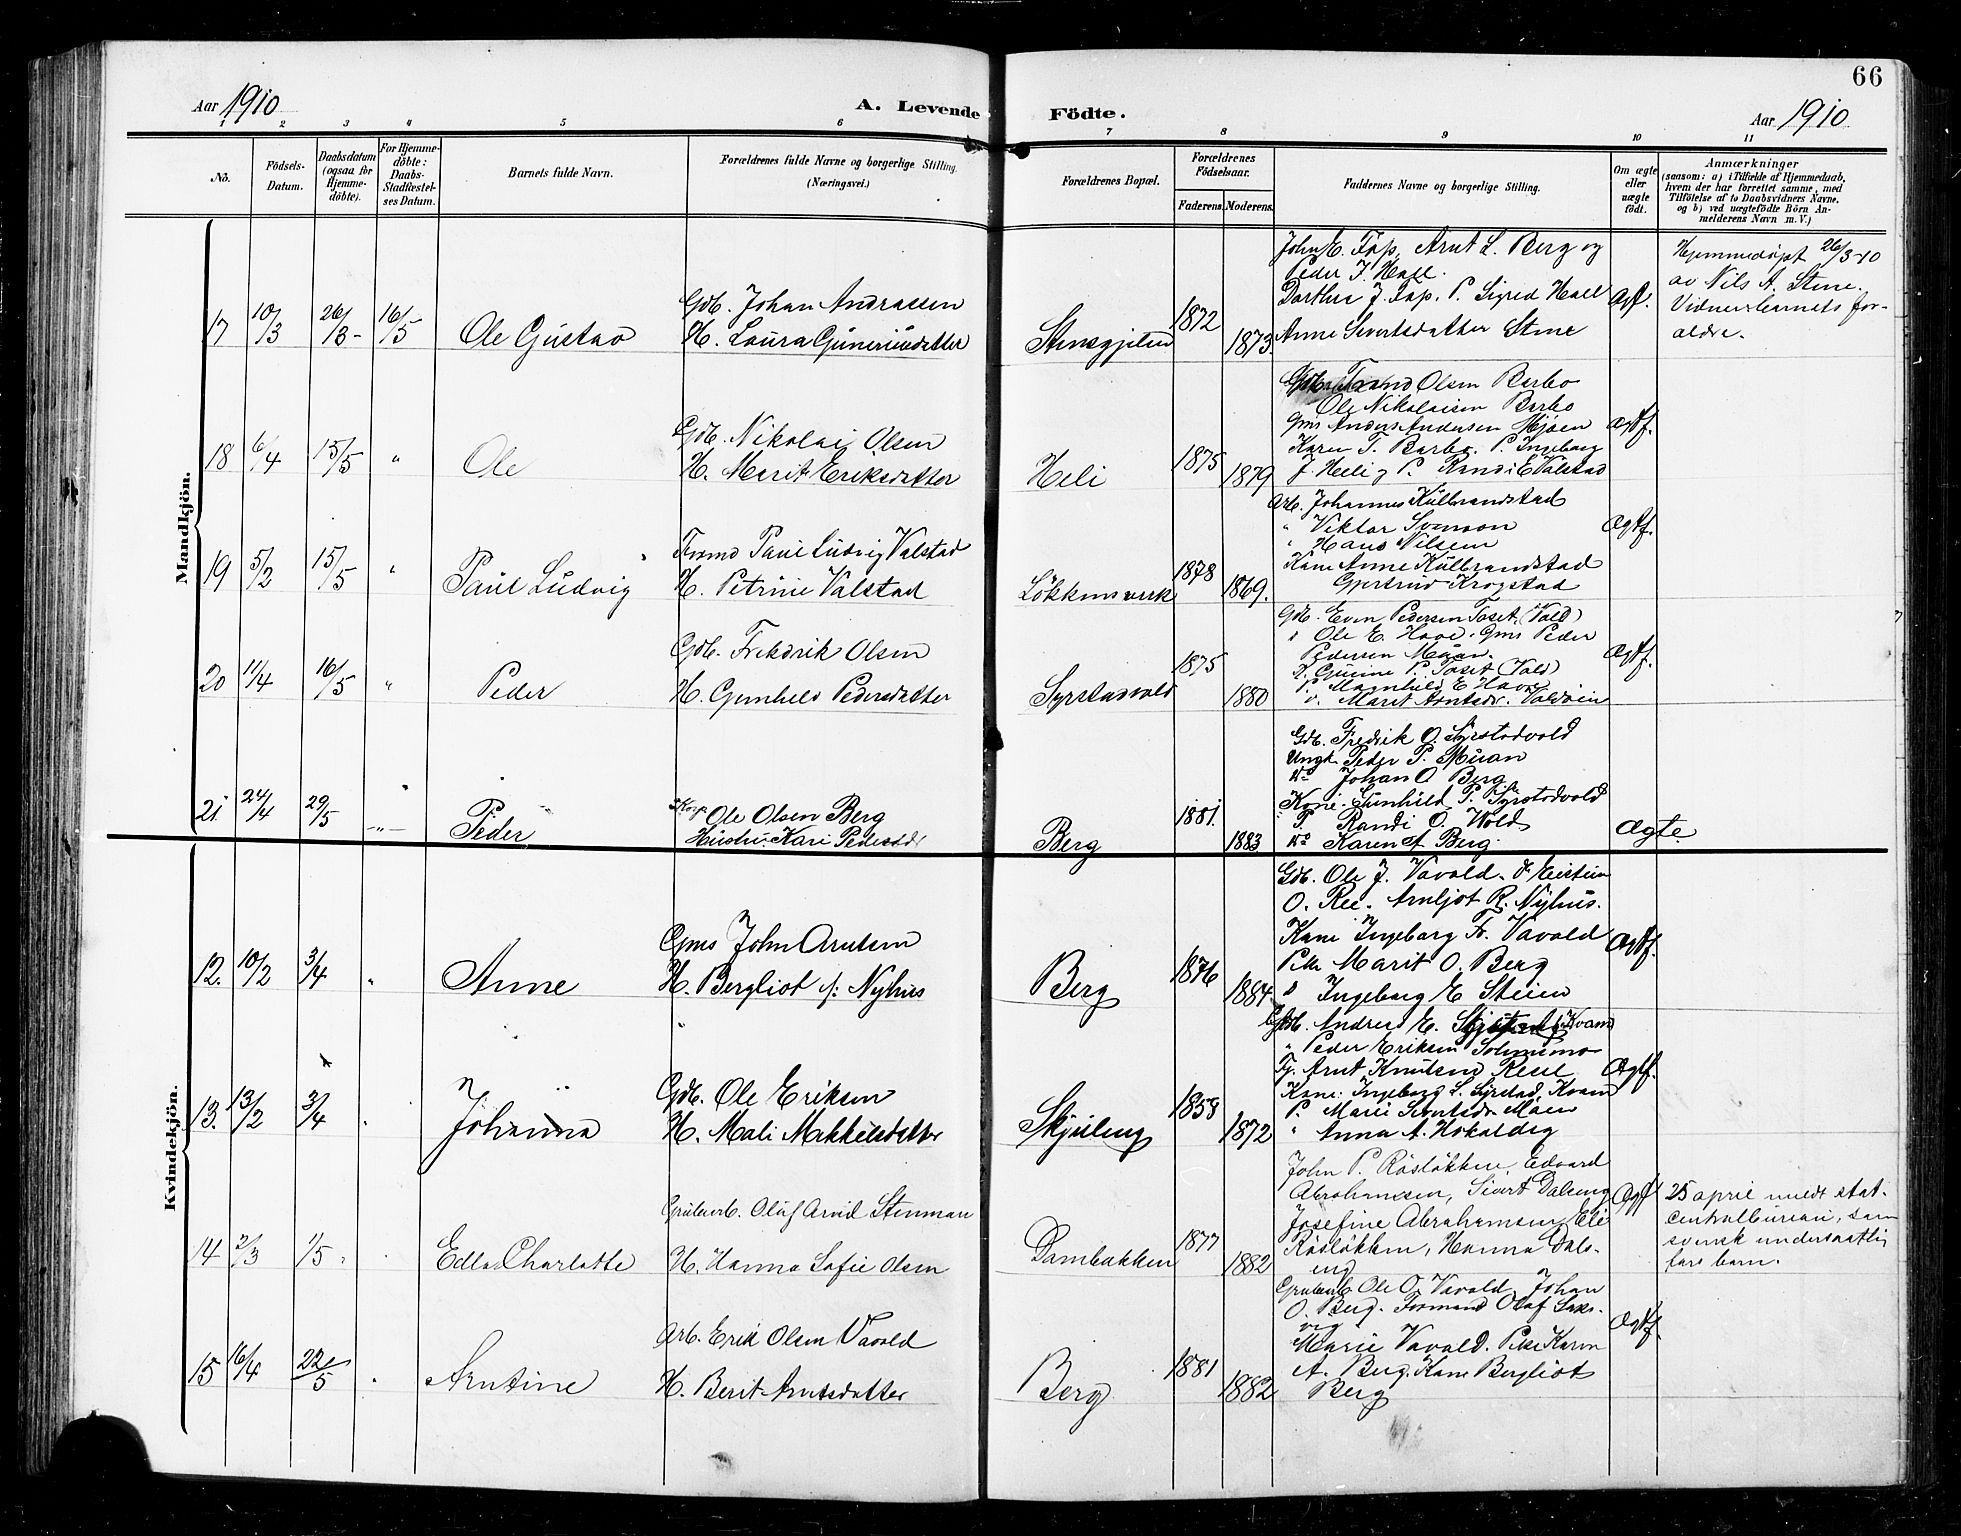 66
Aar 1910
A. Levende Födte.
Aar 1910
1 2 3 4 5 6 7 8 9 10 11
No.
Födsels-Datum.
Daabsdatum (ogsaa for Hjemme-döbte).
For Hjemme-döbte: Daabs-Stadfæstel-ses Datum.
Barnets fulde Navn.
Forældrenes fulde Navne og borgerlige Stilling.
(Næringsvei.)
Forældrenes Bopæl.
Forældrenes Födselsaar.
Faderens. Moderens.
Faddernes Navne og borgerlige Stilling.
Om ægte eller uægte födt.
Anmærkninger
(saasom: a) i Tilfælde af Hjemmedaab,
hvem der har forrettet samme, med
Tilföielse af to Daabsvidners Navne,
og b) ved uægtefödte Börn An-
melderens Navn m. V.)
Mandkjön.
17 10/3 26/3- 16/5 Ole Gustav
Gdb. Johan Andrassen
H. Laura Guneriusdatter
1872 1873
John E. Fap, Arnt L. Berg og
Peder J. Hall.
Dorthea J. Fap. P. Sigrid Hall
Anne Sivertsdatter Stene
Ægtf.
Hjemmedøpt 26/3-10
av Nils A. Stene.
Vidner: barnets for-
ældre.
18 6/4 15/5 " Ole
Gdb. Nikolai Olsen
H. Marit Eriksdatter
Heli 1875 1879
Trond Olsen Barbo
Ole Nikolaisen Barbo
Gms Anders Andersen Mjöen
Karen T. Barbo. P. Ingeborg
J. Heli og P. Randi E Valstad
Ægtf.
19 5/2 15/5 " Paul Ludvig
Formd Paul Ludvig Valstad
H. Petrine Valstad
Lökkensverk 1878 1869.
Arb. Johannes Kulbrandstad
" Viktor Svenson
" Hans Nilsen
Kone Anne Kulbrandstad
Gjertrud Krogstad
Ægtf.
20 11/4 16/5 " Peder
Gdb. Fredrik Olsen
H. Gunhild Pedersdatter
Syrstadvold 1875 1880
Gdb. Even Pedersen Toset (Vold)
" Ole E. Hove. Gms Peder
Pedersen Muan.
P. Toset (Vold)
P. Magnhild E Hove
Marit Arntsdr.
Ægtf.
21 24/4 29/5 -"- Peder
Ole Olsen Berg
Hustru Kari Pedersdr
Berg 1881. 1883
Gdb. Fredrik O. Syrstadvold
Ungk. Peder P. Muan
do Johan O Berg
Kone Gunhild P. Syrstadvold
P. Randi O. Wold
do Karen A Berg.
Ægte.
Kvindekjön.
12. 10/2 3/4 " Anne
Gms John Arntsen
H. Bergliot f: Nyhus
Berg 1876 1884
Gdb. Ole J. Vavold. Eistein
O. Ree. Arnljot R. Nyhus.
Kone Ingeborg Fr. Vavold
Pike Marit O. Berg
" Ingeborg E Steien
Ægtf.
13. 13/2 3/4 " Johanna
Gdb. Ole Eriksen
H. Mali Mikkelsdatter
Skjuling 1858 1872
Gdb. Andres E. Kvam
" Peder Eriksen
Arnt Knutsen Rese
Kone: Ingeborg L. Syrstad, Kvam
P. Marie Sivertsdr Moen
" Anna A. Hokaldeg
Ægtf.
14 2/3 1/5 " Edla Charlotte
Grubearb. Oluf Arvid Stenman
H. Hanna Sofie Olsen
Dambakken 1877 1882
John P. Röslökken, Edvard
Abrahamsen, Sivert Dalseng
Josefine Abrahamsen, Eli
Röslökken, Hanna Dals-
eng
Ægtf
25 april meldt stat.
centralbureau, som
svensk undersaatlig
fars barn.
15 16/4 22/5 " Arntine
Arb. Erik Olsen Vavold
H. Berit Arntsdatter
Berg 1881 1882
Grubearb Ole O. Vavold, Johan
O. Berg. Formand Olaf Saks-
vig
Marie Vavold. Pike Karen
A. Berg. Kone Bergliot
Berg
Ægtf.